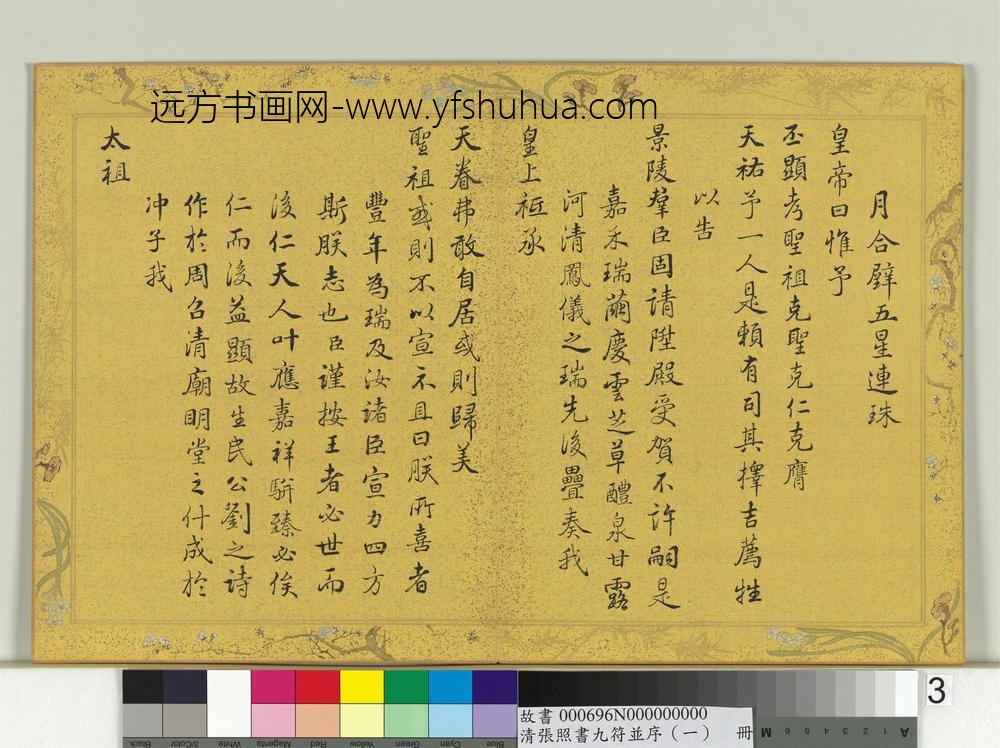 远方书画网-www.yfshuhua.com
月合璧五星連珠
皇帝曰惟予
丕顯考聖祖克聖克仁克膺
天祐予一人是賴有司其擇吉薦牲
以告
景陵羣臣固請陞殿受賀不許嗣是
嘉禾瑞繭慶雲芝草醴泉甘露
河清鳳儀之瑞先後疊奏我
皇上祗承
天眷弗敢自居或則歸美
聖祖或則不以宣示且曰朕所喜者
豐年為瑞及汝諸臣宣力四方
斯朕志也臣謹按王者必世而
後仁天人叶應嘉祥駢臻必俟
仁而後益顯故生民公劉之詩
作於周召清廟明堂之什成於
冲子我
太祖
3
故書 000696N000000000
清張照書九符並序（一） 冊
Black
3/Color
White
Magenta
Red
Yellow
Green
Cyan
Blue
M
6
5
4
3
2
1
A